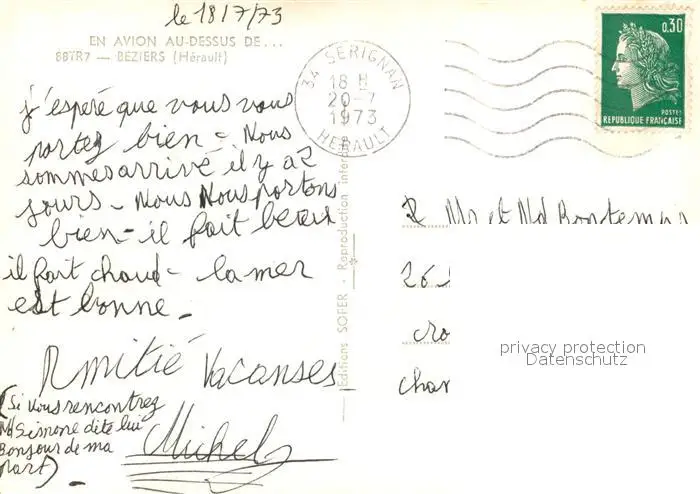 le 18/7/73
EN AVION AU-DESSUS DE...
88TR7 — BÉZIERS (Hérault)
j'espère que vous vous
portez bien - Nous
sommes arrivé il y a 2
jours - Nous Nous portons
bien - il fait beau
il fait chaud - la mer
est bonne -
Amitié Vacanses
(Si vous rencontrez
Md Simone dite lui
Bonjour de ma
part)
Michel
Editions SOFER - Reproduction interdite
34 SERIGNAN
18 H
20-7
1973
HERAULT
0,30
POSTES
REPUBLIQUE FRANÇAISE
Mr et Md Bontemps
26
cro
char
privacy protection
Datenschutz